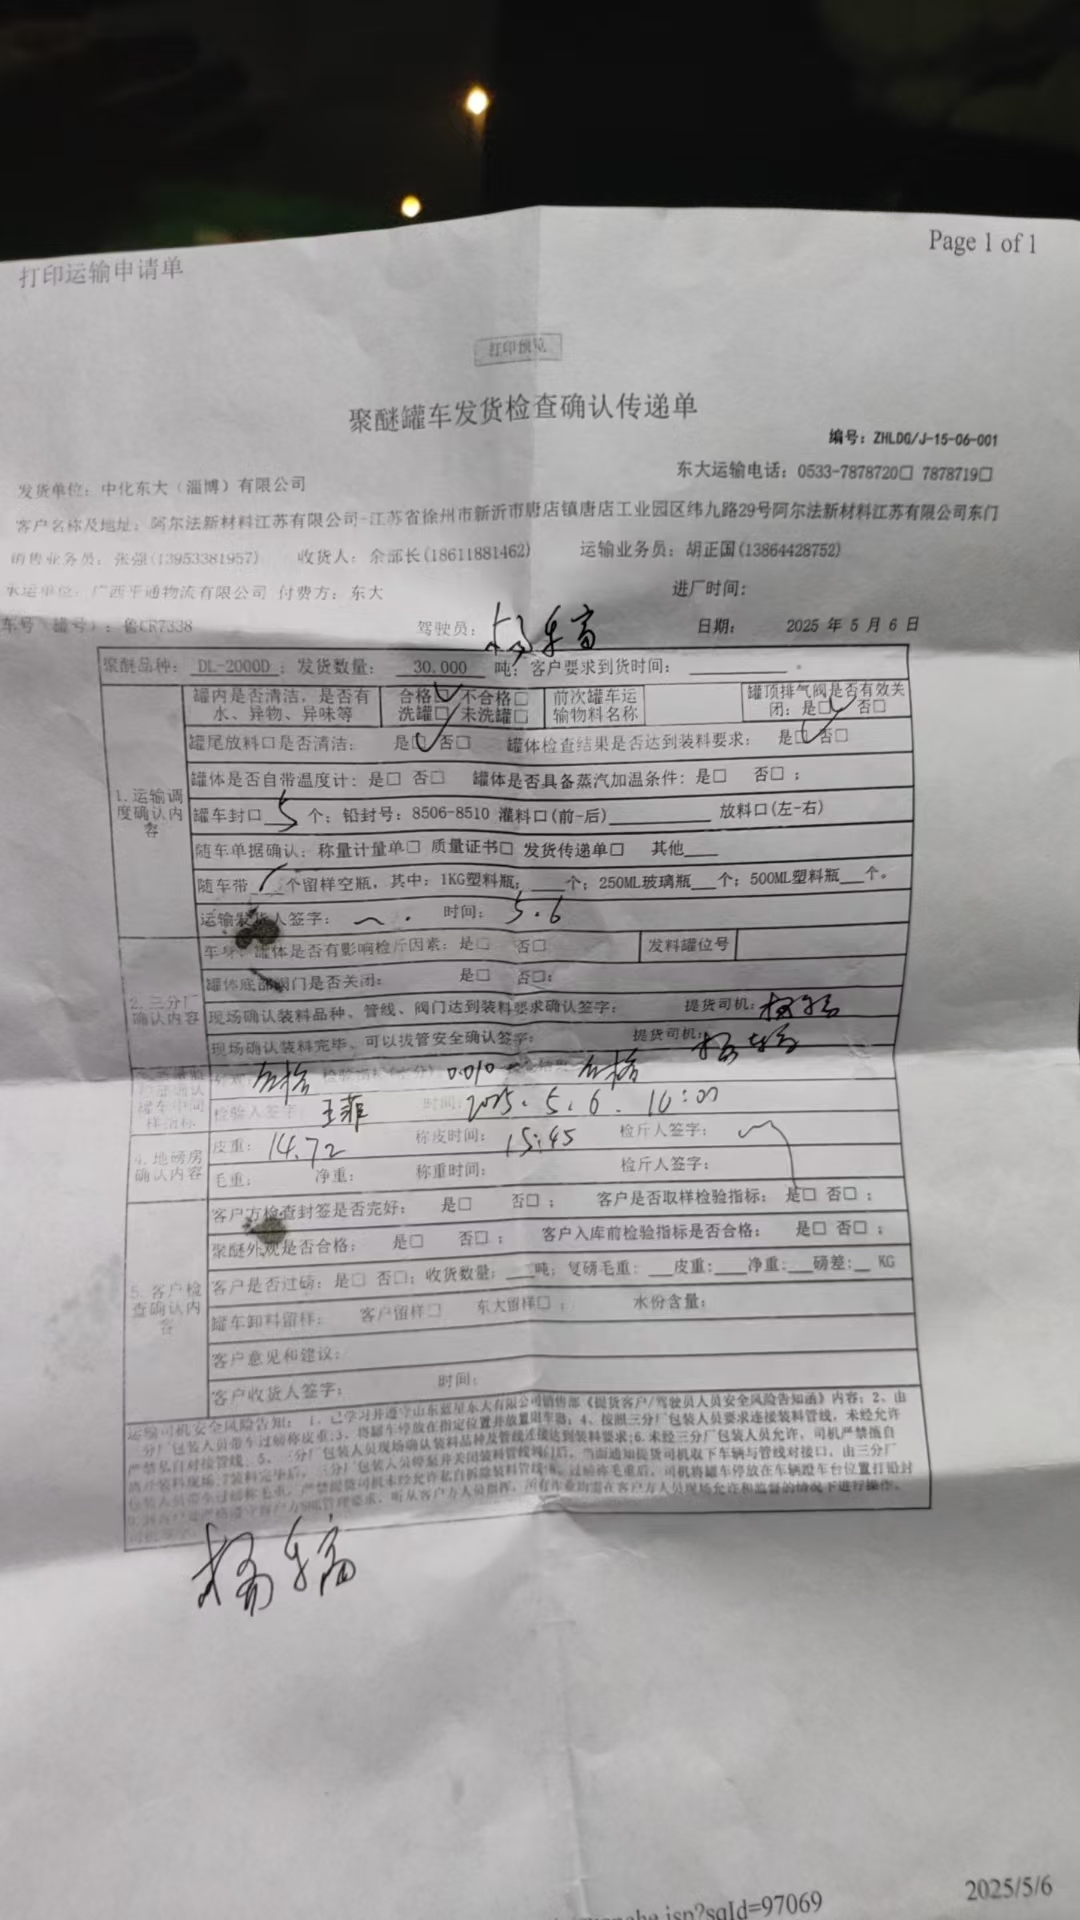 Page 1 of 1
打印运输申请单
打印预览
聚醚罐车发货检查确认传递单
编号：ZHLDG/J-15-06-001
东大运输电话：0533-7878720□ 7878719□
发货单位：中化东大（淄博）有限公司
客户名称及地址：阿尔法新材料江苏有限公司-江苏省徐州市新沂市唐店镇唐店工业园区纬九路29号阿尔法新材料江苏有限公司东门
销售业务员：张强(13953381957) 收货人：余部长(18611881462) 运输业务员：胡正国(13864428752)
承运单位：广西平通物流有限公司 付费方：东大 进厂时间：
车号（罐号）：鲁CR7338 驾驶员： 日期： 2025 年 5 月 6 日
聚醚品种： DL-2000D ；发货数量： 30.000 吨；客户要求到货时间：
罐内是否清洁，是否有水、异物、异味等 合格□ 不合格□ 洗罐□ 未洗罐□ 前次罐车运输物料名称 罐顶排气阀是否有效关闭：是□ 否□
罐尾放料口是否清洁： 是□ 否□ 罐体检查结果是否达到装料要求： 是□ 否□
1.运输调度确认内容
罐体是否自带温度计：是□ 否□ 罐体是否具备蒸汽加温条件：是□ 否□；
罐车封口 5 个；铅封号：8506-8510 灌料口(前-后) 放料口(左-右)
随车单据确认：称量计量单□ 质量证书□ 发货传递单□ 其他
随车带 个留样空瓶，其中：1KG塑料瓶： 个；250ML玻璃瓶 个；500ML塑料瓶 个。
运输发货人签字： 时间： 5.6
2.三分厂确认内容
车身、罐体是否有影响检斤因素：是□ 否□ 发料罐位号
罐体底部阀门是否关闭： 是□ 否□：
现场确认装料品种、管线、阀门达到装料要求确认签字： 提货司机：
现场确认装料完毕、可以拔管安全确认签字： 提货司机：
合格 0.010 合格
检验人签字： 王菲 时间： 2025.5.6. 16:00
4.地磅房确认内容
皮重： 14.72 称皮时间： 15:45 检斤人签字：
毛重： 净重： 称重时间： 检斤人签字：
5.客户检查确认内容
客户方检查封签是否完好： 是□ 否□； 客户是否取样检验指标： 是□ 否□；
聚醚外观是否合格： 是□ 否□； 客户入库前检验指标是否合格： 是□ 否□；
客户是否过磅：是□ 否□；收货数量： 吨；复磅毛重： 皮重： 净重： 磅差： KG
罐车卸料留样： 客户留样□ 东大留样□； 水份含量：
客户意见和建议：
客户收货人签字： 时间：
运输司机安全风险告知： 1、已学习并遵守山东蓝星东大有限公司销售部《提货客户/驾驶员人员安全风险告知函》内容；2、由
三分厂包装人员带车过磅称皮重；3、将罐车停放在指定位置并放置阻车器；4、按照三分厂包装人员要求连接装料管线，未经允许
严禁私自对接管线；5、三分厂包装人员现场确认装料品种及管线连接达到装料要求；6.未经三分厂包装人员允许，司机严禁擅自
离开装料现场；7装料完毕后，三分厂包装人员停泵并关闭装料管线阀门后，当面通知提货司机取下车辆与管线对接口，由三分厂
包装人员带车过磅称毛重，严禁提货司机未经允许私自拆除装料管线；8、过磅称毛重后，司机将罐车停放在车辆蹬车台位置打铅封
2025/5/6
jsp?sqId=97069